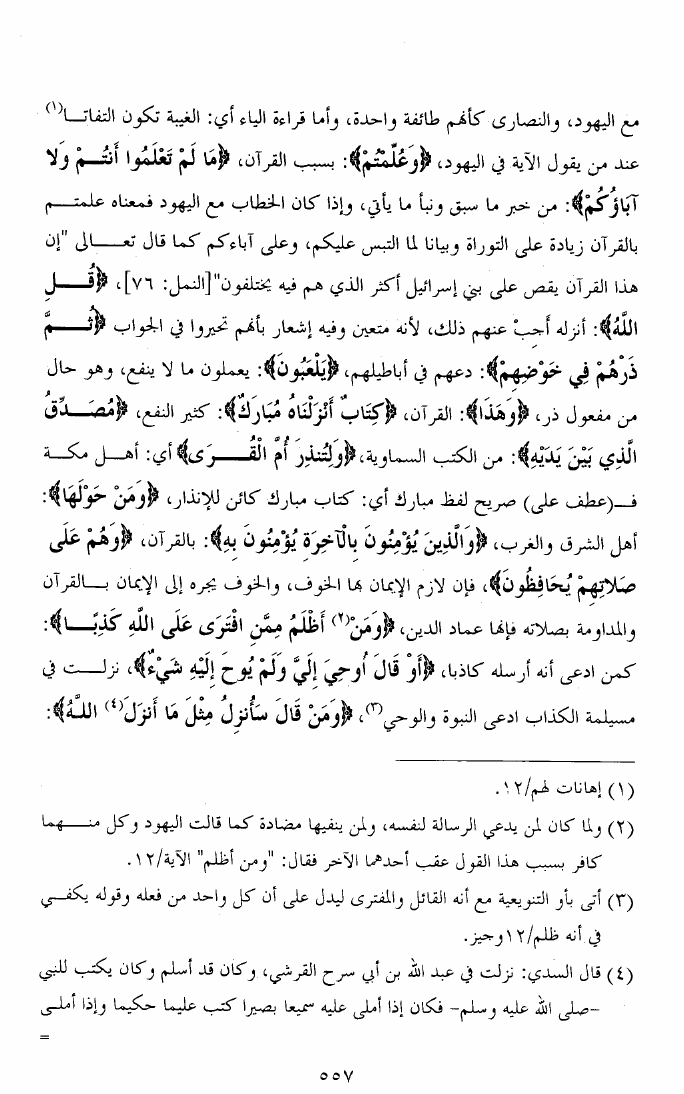 مع اليهود، والنصارى كأنهم طائفة واحدة، وأما قراءة الياء أي: الغيبة تكون التفاتـا(١)
عند من يقول الآية في اليهود، ﴿وَعُلِّمْتُمْ﴾: بسبب القرآن، ﴿مَا لَمْ تَعْلَمُوا أَنتُـمْ وَلَا
آبَاؤُكُمْ﴾: من خبر ما سبق ونبأ ما يأتي، وإذا كان الخطاب مع اليهود فمعناه علمتـم
بالقرآن زيادة على التوراة وبيانا لما التبس عليكم، وعلى آباءكم كما قال تعـالى "إن
هذا القرآن يقص على بني إسرائيل أكثر الذي هم فيه يختلفون"[النمل: ٧٦]، ﴿قُـلِ
اللَّهُ﴾: أنزله أجبْ عنهم ذلك، لأنه متعين وفيه إشعار بأنهم تحيروا في الجواب ﴿ثُـمَّ
ذَرْهُمْ فِي خَوْضِهِمْ﴾: دعهم في أباطيلهم، ﴿يَلْعَبُونَ﴾: يعملون ما لا ينفع، وهو حال
من مفعول ذر، ﴿وَهَذَا﴾: القرآن، ﴿كِتَابٌ أَنْزَلْنَاهُ مُبَارَكٌ﴾: كثير النفع، ﴿مُصَـدِّقُ
الَّذِي بَيْنَ يَدَيْهِ﴾: من الكتب السماوية،﴿وَلِتُنذِرَ أُمَّ الْقُـرَى﴾ أي: أهـل مكـة
فـ(عطف على) صريح لفظ مبارك أي: كتاب مبارك كائن للإنذار، ﴿وَمَنْ حَوْلَهَا﴾:
أهل الشرق والغرب، ﴿وَالَّذِينَ يُؤْمِنُونَ بِالْآخِرَةِ يُؤْمِنُونَ بِهِ﴾: بالقرآن، ﴿وَهُمْ عَلَى
صَلَاتِهِمْ يُحَافِظُونَ﴾، فإن لازم الإيمان بها الخوف، والخوف يجره إلى الإيمان بـالقرآن
والمداومة بصلاته فإنها عماد الدين، ﴿وَمَنْ(٢) أَظْلَمُ مِمَّنِ افْتَرَى عَلَى اللَّهِ كَذِبًـا﴾:
كمن ادعى أنه أرسله كاذبا، ﴿أَوْ قَالَ أُوحِيَ إِلَيَّ وَلَمْ يُوحَ إِلَيْهِ شَيْءٌ﴾، نزلـت في
مسيلمة الكذاب ادعى النبوة والوحي(٣)، ﴿وَمَنْ قَالَ سَأُنزِلُ مِثْلَ مَا أَنزَلَ(٤) اللَّهُ﴾:
(١) إهانات لهم/١٢.
(٢) ولما كان لمن يدعي الرسالة لنفسه، ولمن ينفيها مضادة كما قالت اليهود وكل منـهما
كافر بسبب هذا القول عقب أحدهما الآخر فقال: "ومن أظلم" الآية/١٢.
(٣) أتى بأو التنويعية مع أنه القائل والمفترى ليدل على أن كل واحد من فعله وقوله يكفـي
في أنه ظلم/١٢وجيز.
(٤) قال السدي: نزلت في عبد الله بن أبي سرح القرشي، وكان قد أسلم وكان يكتب للنبي
-صلى الله عليه وسلم- فكان إذا أملى عليه سميعا بصيرا كتب عليما حكيما وإذا أملـى
=
٥٥٧